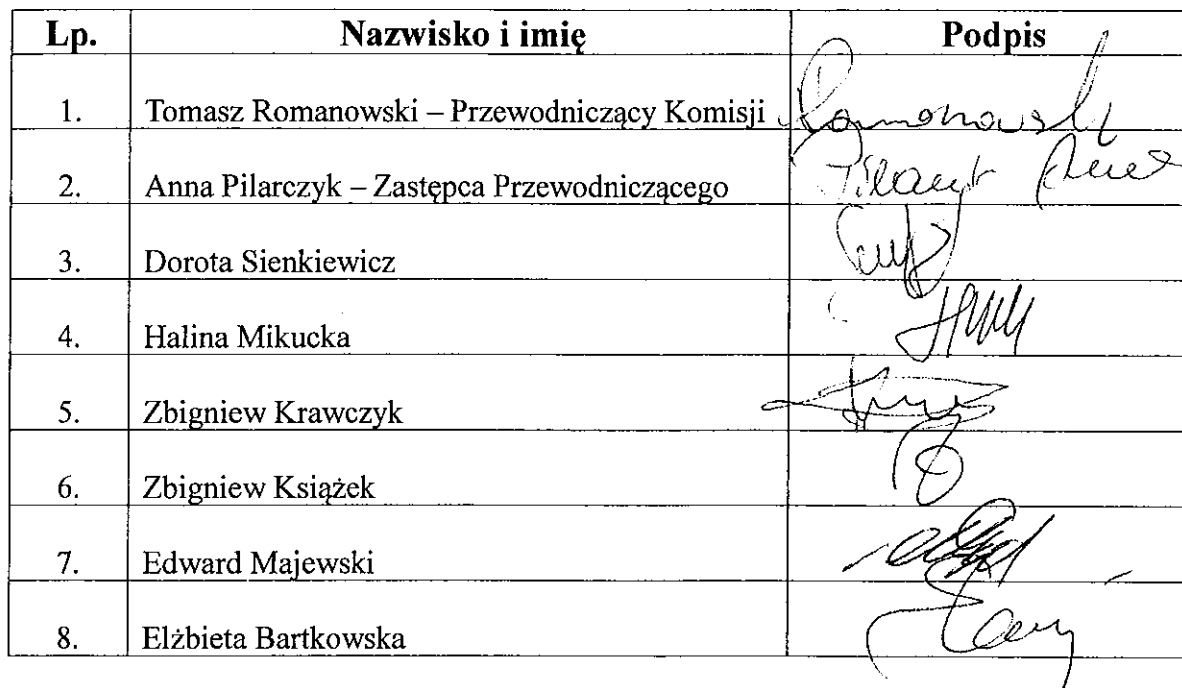 Lp. Nazwisko i imię Podpis
1. Tomasz Romanowski – Przewodniczący Komisji Romanowski
2. Anna Pilarczyk – Zastępca Przewodniczącego
3. Dorota Sienkiewicz
4. Halina Mikucka
5. Zbigniew Krawczyk
6. Zbigniew Książek
7. Edward Majewski
8. Elżbieta Bartkowska